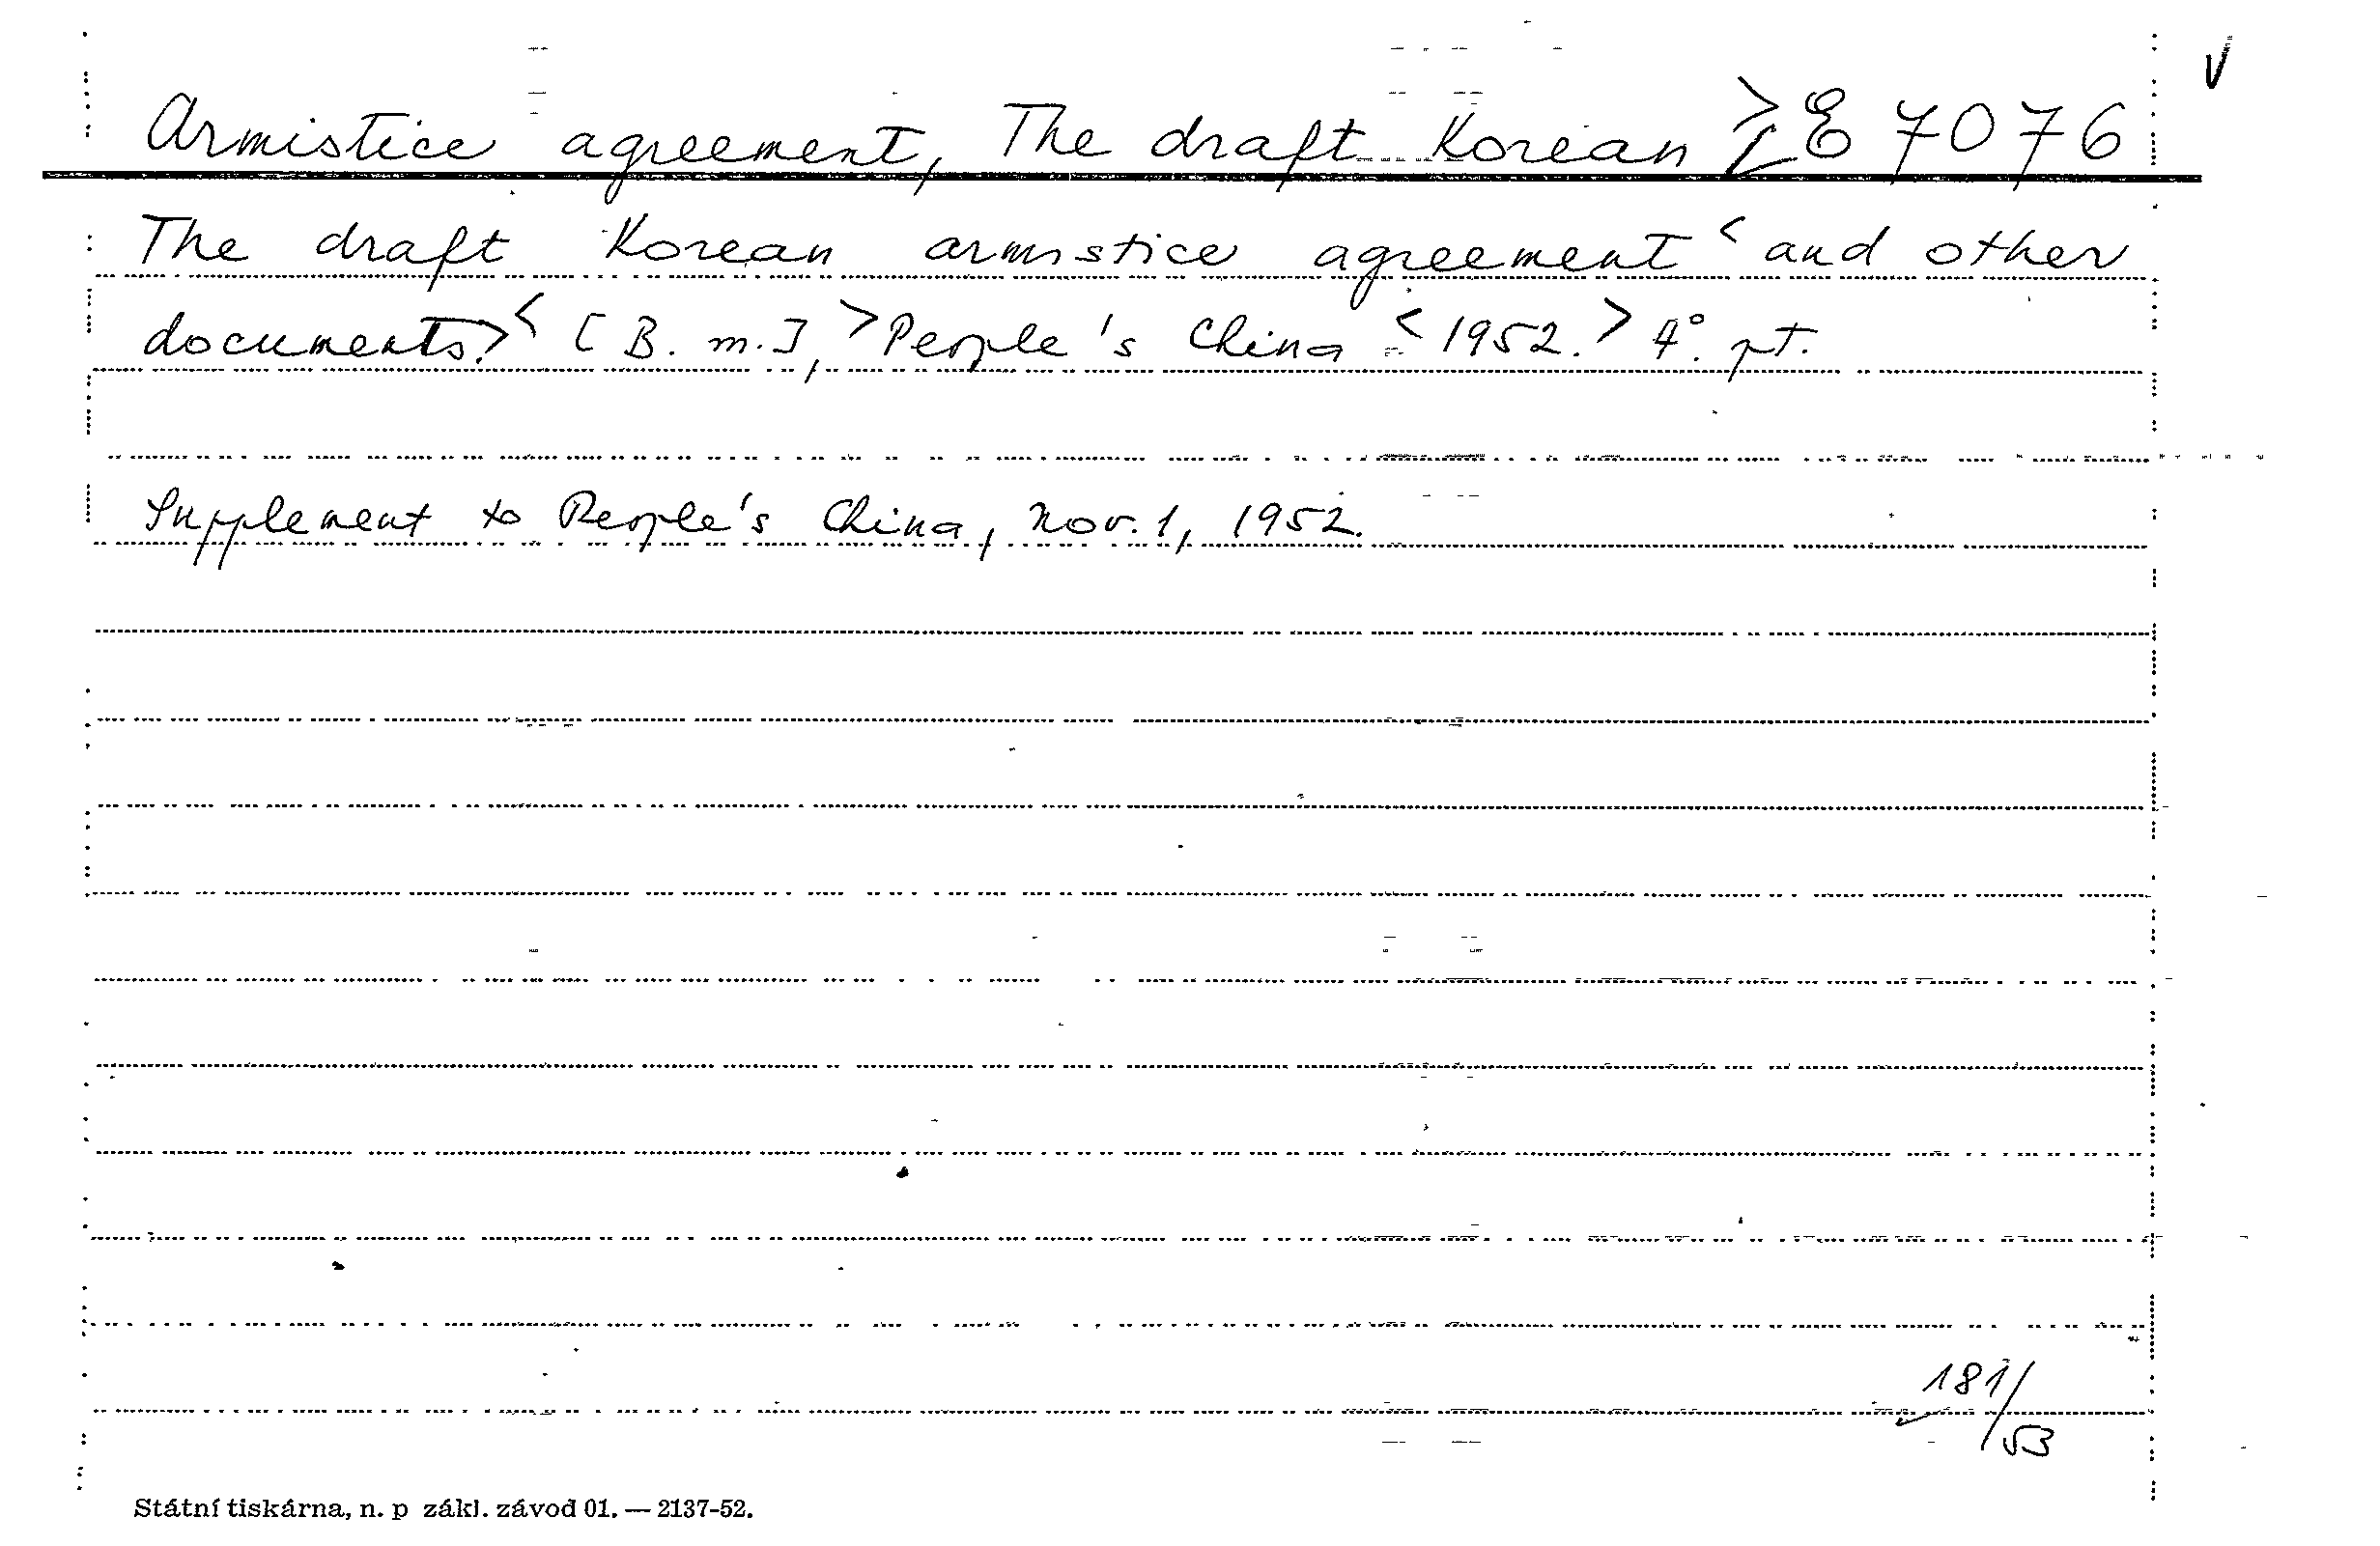 Armistice agreement, The draft Korean > I E 7076
The draft Korean armistice agreement < and other
documents. > < [B. m.], > People's China < 1952. > 4°. pt.
Supplement to People's China, Nov. 1, 1952.
181/53
Státní tiskárna, n. p zákl. závod 01. — 2137-52.